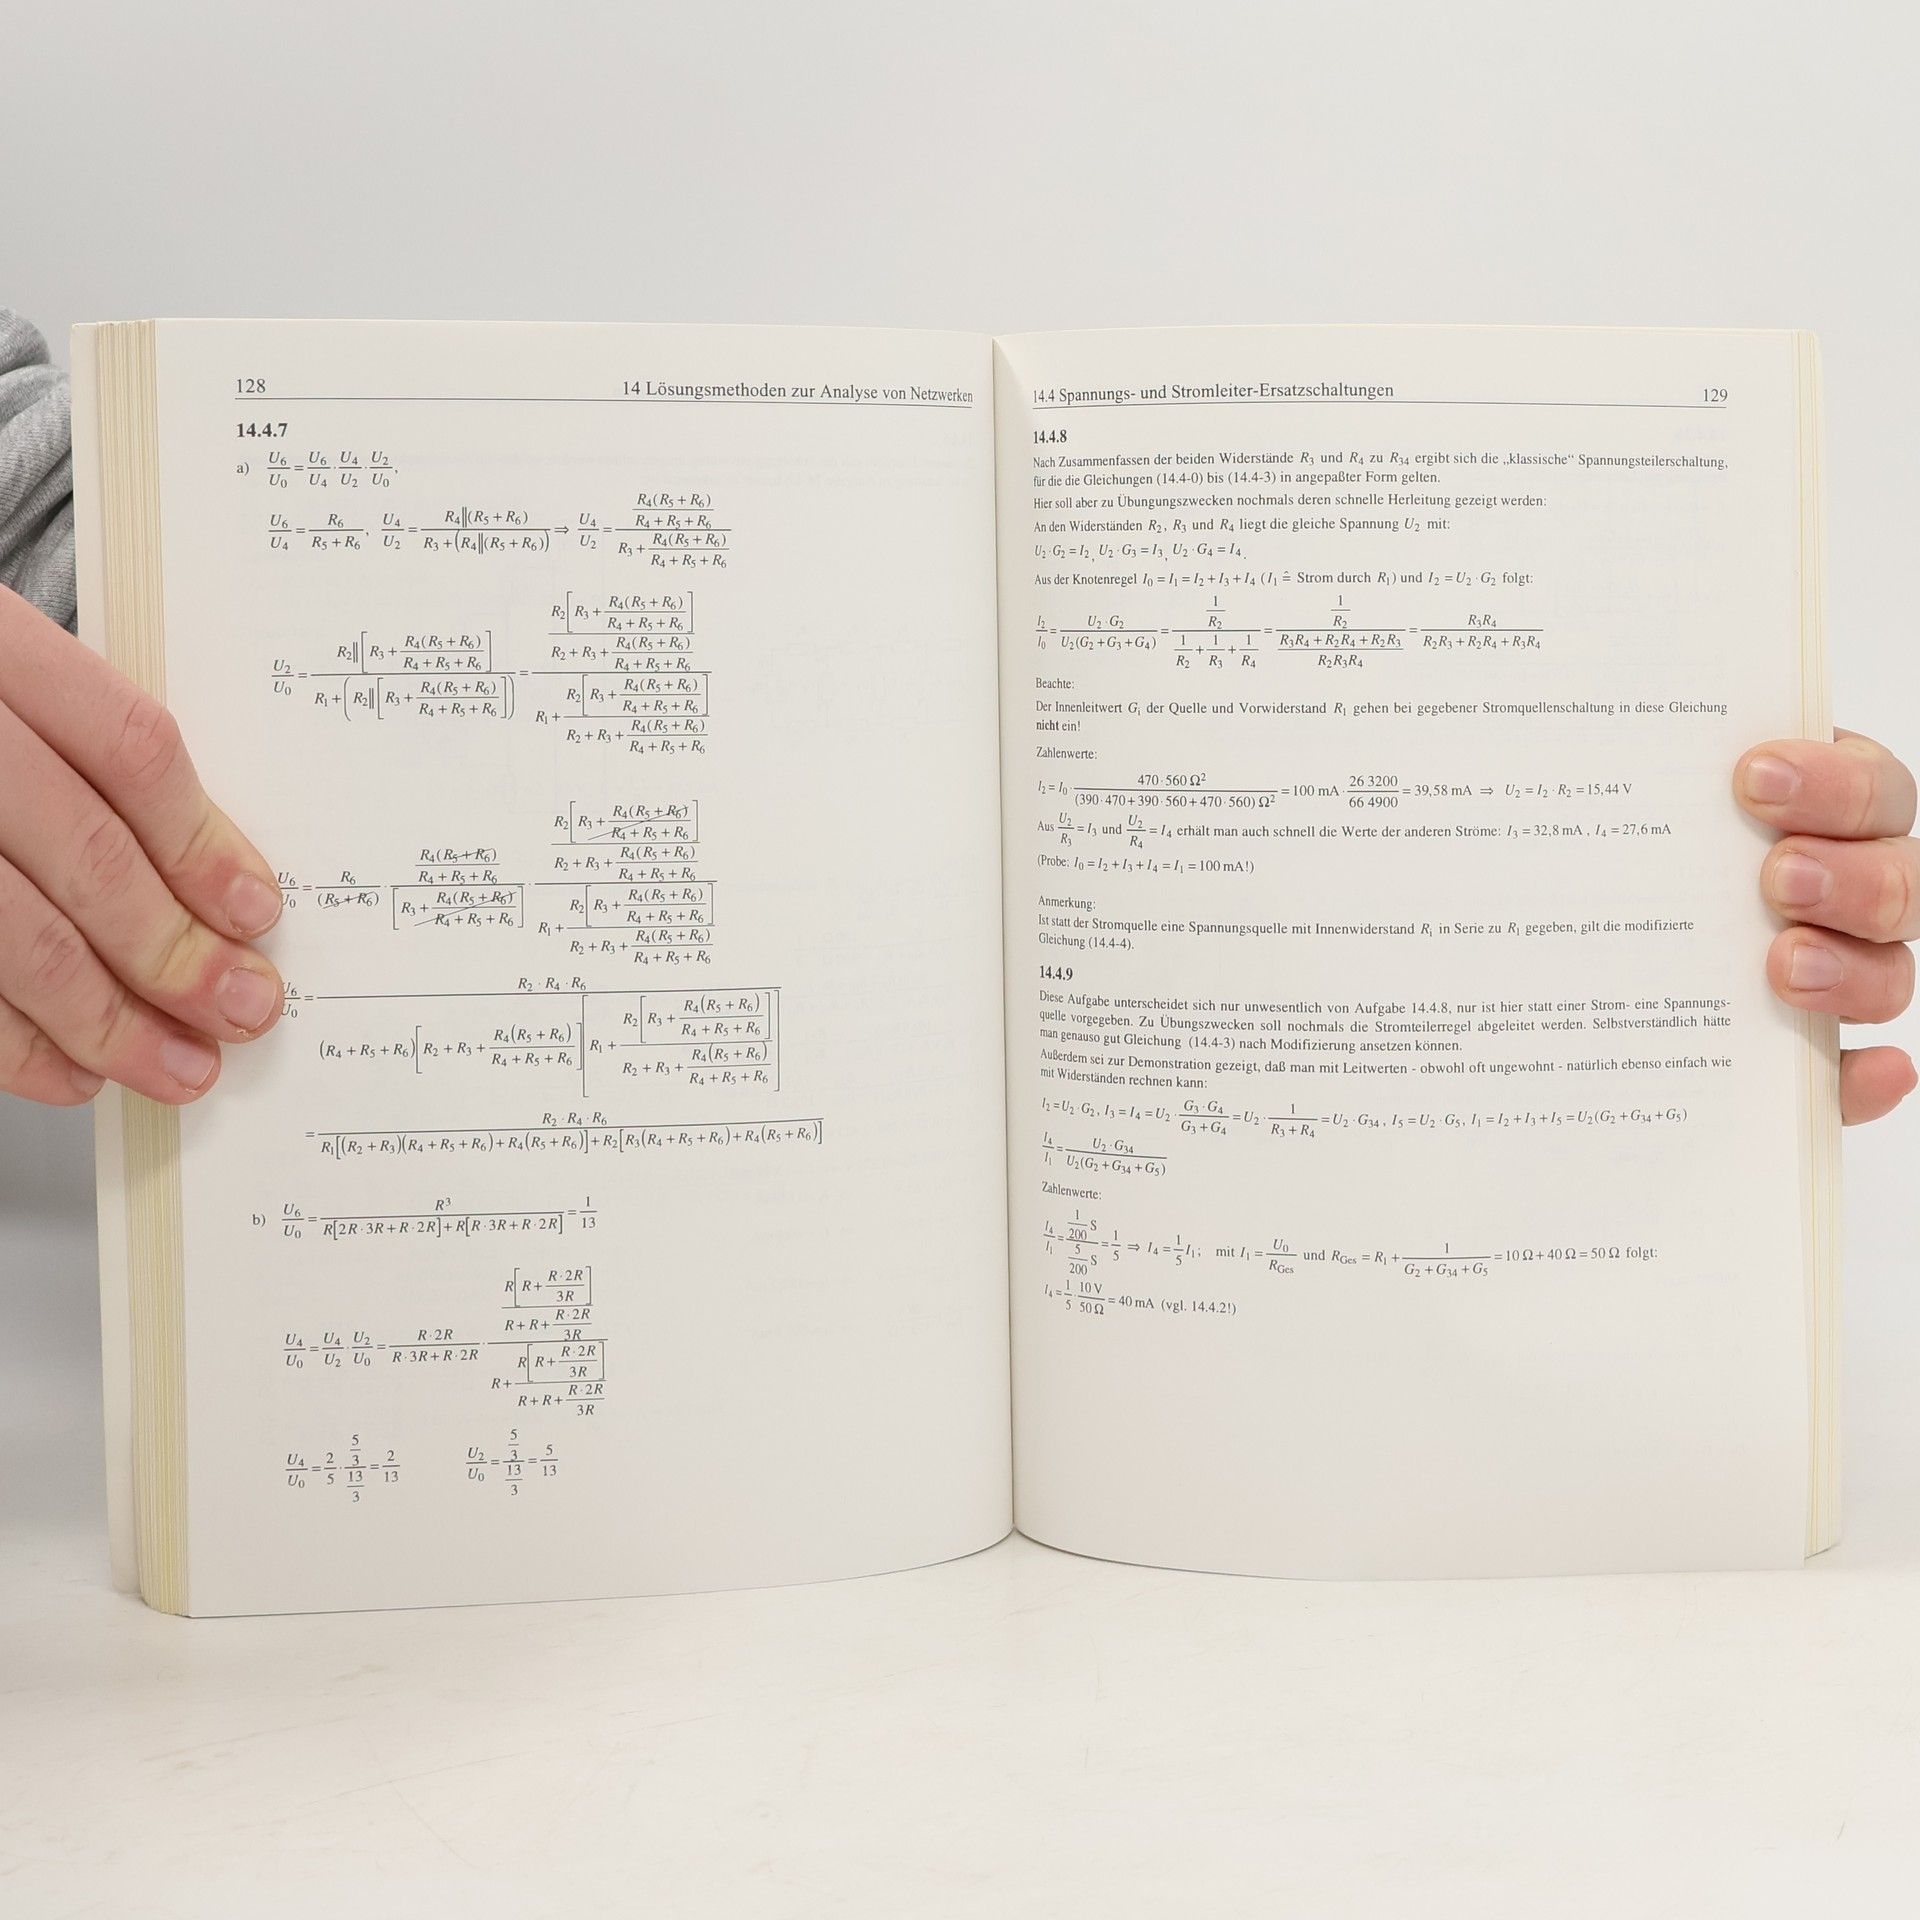 128 14 Lösungsmethoden zur Analyse von Netzwerken
14.4.7
a) U₆/U₀ = U₆/U₄ · U₄/U₂ · U₂/U₀,
U₆/U₄ = R₆/(R₅ + R₆), U₄/U₂ = R₄‖(R₅ + R₆)/(R₃ + (R₄‖(R₅ + R₆))) ⇒ U₄/U₂ = (R₄(R₅ + R₆)/(R₄ + R₅ + R₆))/(R₃ + R₄(R₅ + R₆)/(R₄ + R₅ + R₆))
U₂/U₀ = (R₂‖[R₃ + R₄(R₅ + R₆)/(R₄ + R₅ + R₆)])/(R₁ + (R₂‖[R₃ + R₄(R₅ + R₆)/(R₄ + R₅ + R₆)])) = (R₂[R₃ + R₄(R₅ + R₆)/(R₄ + R₅ + R₆)]/(R₂ + R₃ + R₄(R₅ + R₆)/(R₄ + R₅ + R₆)))/(R₁ + R₂[R₃ + R₄(R₅ + R₆)/(R₄ + R₅ + R₆)]/(R₂ + R₃ + R₄(R₅ + R₆)/(R₄ + R₅ + R₆)))
U₆/U₀ = R₆/(R₅ + R₆) · (R₄(R₅ + R₆)/(R₄ + R₅ + R₆))/[R₃ + R₄(R₅ + R₆)/(R₄ + R₅ + R₆)] · (R₂[R₃ + R₄(R₅ + R₆)/(R₄ + R₅ + R₆)]/(R₂ + R₃ + R₄(R₅ + R₆)/(R₄ + R₅ + R₆)))/(R₁ + R₂[R₃ + R₄(R₅ + R₆)/(R₄ + R₅ + R₆)]/(R₂ + R₃ + R₄(R₅ + R₆)/(R₄ + R₅ + R₆)))
U₆/U₀ = R₂ · R₄ · R₆/((R₄ + R₅ + R₆)[R₂ + R₃ + R₄(R₅ + R₆)/(R₄ + R₅ + R₆)][R₁ + R₂[R₃ + R₄(R₅ + R₆)/(R₄ + R₅ + R₆)]/(R₂ + R₃ + R₄(R₅ + R₆)/(R₄ + R₅ + R₆))])
= R₂ · R₄ · R₆/(R₁[(R₂ + R₃)(R₄ + R₅ + R₆) + R₄(R₅ + R₆)] + R₂[R₃(R₄ + R₅ + R₆) + R₄(R₅ + R₆)])
b) U₆/U₀ = R³/(R[2R · 3R + R · 2R] + R[R · 3R + R · 2R]) = 1/13
U₄/U₀ = U₄/U₂ · U₂/U₀ = R · 2R/(R · 3R + R · 2R) · (R[R + R · 2R/3R]/(R + R + R · 2R/3R))/(R + R[R + R · 2R/3R]/(R + R + R · 2R/3R))
U₄/U₀ = 2/5 · (5/3)/(13/3) = 2/13 U₂/U₀ = (5/3)/(13/3) = 5/13
14.4 Spannungs- und Stromleiter-Ersatzschaltungen 129
14.4.8
Nach Zusammenfassen der beiden Widerstände R₃ und R₄ zu R₃₄ ergibt sich die „klassische“ Spannungsteilerschaltung,
für die die Gleichungen (14.4-0) bis (14.4-3) in angepaßter Form gelten.
Hier soll aber zu Übungungszwecken nochmals deren schnelle Herleitung gezeigt werden:
An den Widerständen R₂, R₃ und R₄ liegt die gleiche Spannung U₂ mit:
U₂ · G₂ = I₂, U₂ · G₃ = I₃, U₂ · G₄ = I₄.
Aus der Knotenregel I₀ = I₁ = I₂ + I₃ + I₄ (I₁ ≙ Strom durch R₁) und I₂ = U₂ · G₂ folgt:
I₂/I₀ = U₂ · G₂/(U₂(G₂ + G₃ + G₄)) = (1/R₂)/(1/R₂ + 1/R₃ + 1/R₄) = (1/R₂)/((R₃R₄ + R₂R₄ + R₂R₃)/(R₂R₃R₄)) = R₃R₄/(R₂R₃ + R₂R₄ + R₃R₄)
Beachte:
Der Innenleitwert Gᵢ der Quelle und Vorwiderstand R₁ gehen bei gegebener Stromquellenschaltung in diese Gleichung
nicht ein!
Zahlenwerte:
I₂ = I₀ · 470 · 560 Ω²/((390 · 470 + 390 · 560 + 470 · 560) Ω²) = 100 mA · 26 3200/66 4900 = 39,58 mA ⇒ U₂ = I₂ · R₂ = 15,44 V
Aus U₂/R₃ = I₃ und U₂/R₄ = I₄ erhält man auch schnell die Werte der anderen Ströme: I₃ = 32,8 mA , I₄ = 27,6 mA
(Probe: I₀ = I₂ + I₃ + I₄ = I₁ = 100 mA!)
Anmerkung:
Ist statt der Stromquelle eine Spannungsquelle mit Innenwiderstand Rᵢ in Serie zu R₁ gegeben, gilt die modifizierte
Gleichung (14.4-4).
14.4.9
Diese Aufgabe unterscheidet sich nur unwesentlich von Aufgabe 14.4.8, nur ist hier statt einer Strom- eine Spannungs-
quelle vorgegeben. Zu Übungszwecken soll nochmals die Stromteilerregel abgeleitet werden. Selbstverständlich hätte
man genauso gut Gleichung (14.4-3) nach Modifizierung ansetzen können.
Außerdem sei zur Demonstration gezeigt, daß man mit Leitwerten - obwohl oft ungewohnt - natürlich ebenso einfach wie
mit Widerständen rechnen kann:
I₂ = U₂ · G₂, I₃ = I₄ = U₂ · G₃ · G₄/(G₃ + G₄) = U₂ · 1/(R₃ + R₄) = U₂ · G₃₄, I₅ = U₂ · G₅, I₁ = I₂ + I₃ + I₅ = U₂(G₂ + G₃₄ + G₅)
I₄/I₁ = U₂ · G₃₄/(U₂(G₂ + G₃₄ + G₅))
Zahlenwerte:
I₄/I₁ = (1/200 S)/(5/200 S) = 1/5 ⇒ I₄ = 1/5 I₁; mit I₁ = U₀/R_Ges und R_Ges = R₁ + 1/(G₂ + G₃₄ + G₅) = 10 Ω + 40 Ω = 50 Ω folgt:
I₄ = 1/5 · 10 V/50 Ω = 40 mA (vgl. 14.4.2!)